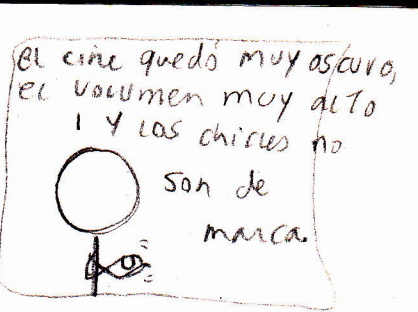 el cine quedó muy oscuro,
el volumen muy alto
y los chicles no
son de
marca.